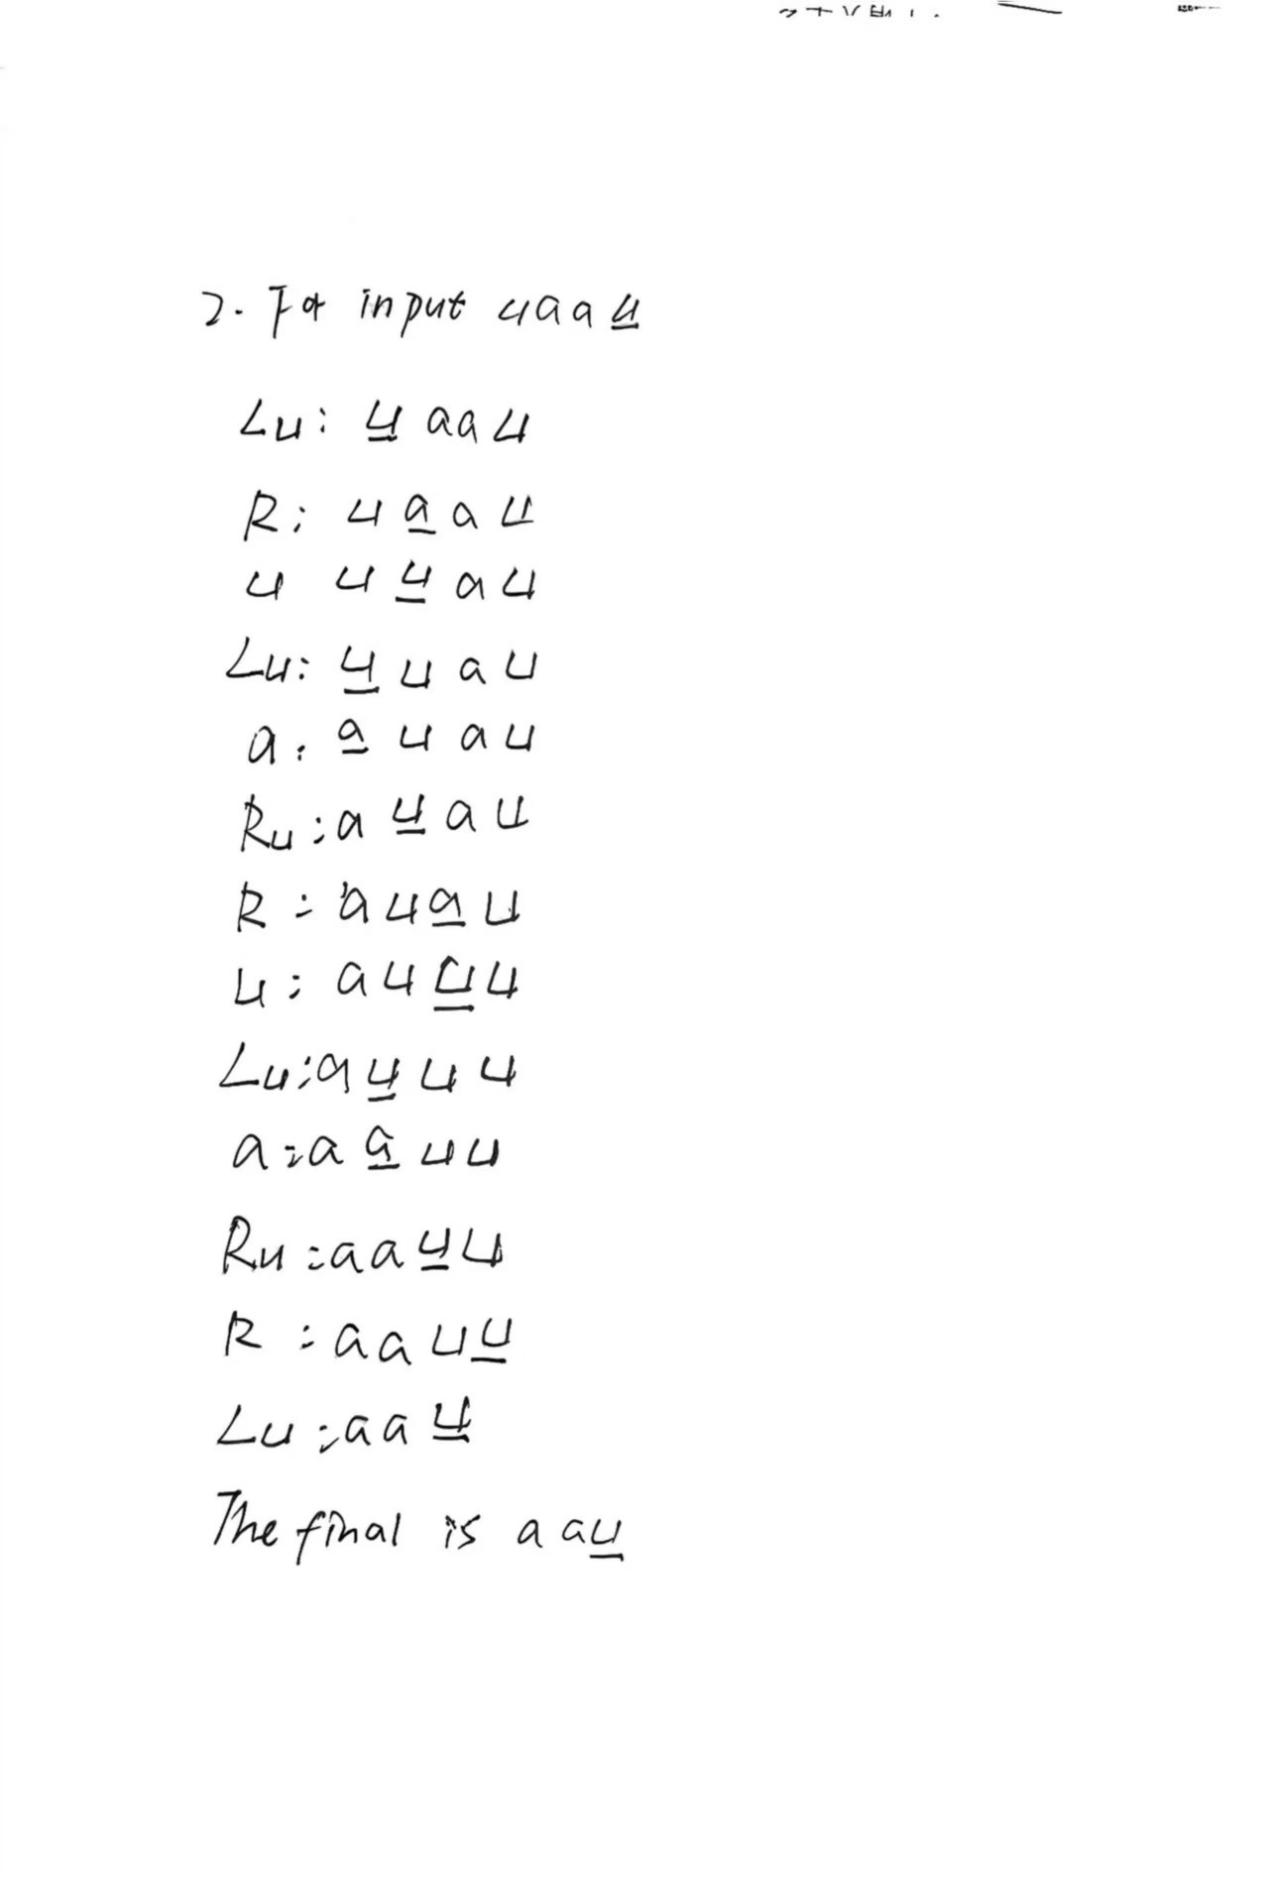 2. For input ⊔aa⊔
L⊔: ⊔ aa⊔
R: ⊔ a a ⊔
⊔ ⊔ ⊔ a ⊔
L⊔: ⊔ ⊔ a ⊔
a: a ⊔ a ⊔
R⊔: a ⊔ a ⊔
R: a ⊔ a ⊔
⊔: a ⊔ ⊔ ⊔
L⊔: a ⊔ ⊔ ⊔
a: a a ⊔ ⊔
R⊔: a a ⊔ ⊔
R: a a ⊔ ⊔
L⊔: a a ⊔
The final is a a⊔